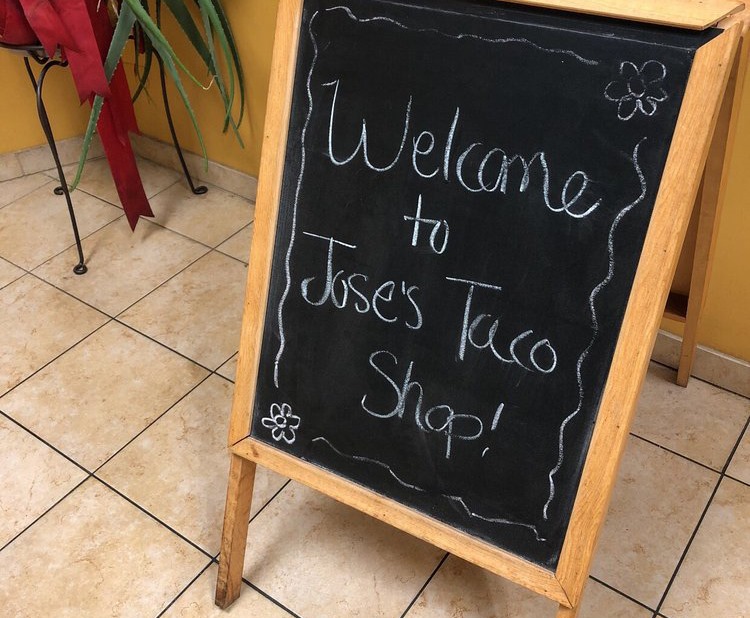 Welcome
to
Jose's Taco
Shop!